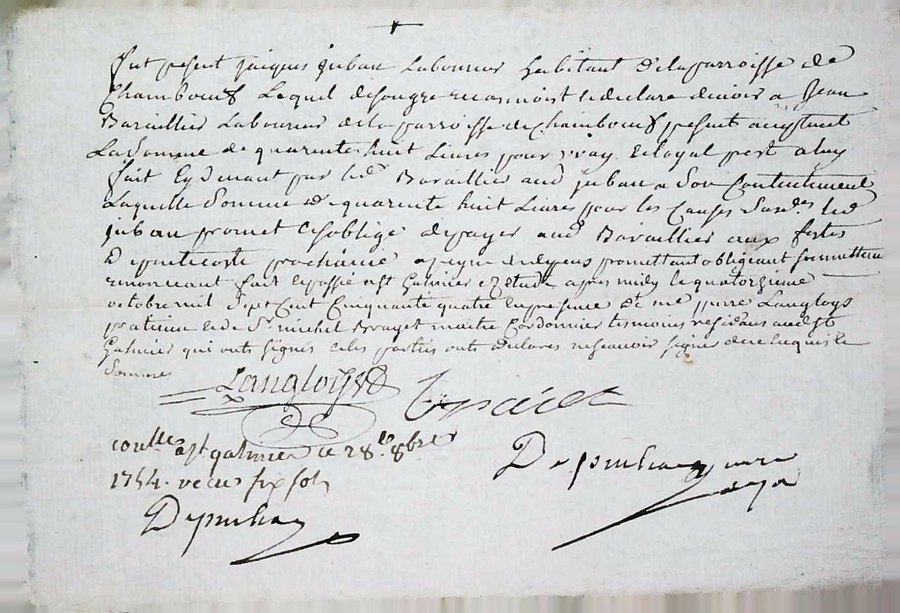 fut present Jacques juban Laboureur habitant de la parroisse de
Chambœuf Lequel de son gre reconnoist et declare devoir a Jean
Baraillier Laboureur de la parroisse de Chambœuf present acceptant
La Somme de quarente huit Livres pour vray et loyal prest a luy
fait cy devant par led Baraillier aud juban a Son Contentement
Laquelle Somme de quarente huit Livres pour les Causes Susdes led
juban promet et soblige de payer aud Baraillier aux festes
de pentecoste prochaine a peine de depens promettant obligeant soumettant
renonceant fait et passé a st Galmier etude apres midy le quatorzieme
octobre mil Sept Cent Cinquante quatre en presence de me pierre Langloys
praticien et de Sr michel Brayet maitre Cordonnier tesmoins residans aud st
Galmier qui onts signés et les parties onts declarés ne scavoir signer de ce enquis et
Sommés
Langloys
conllé a st galmier ce 28e 8bre
1754. recu six sols